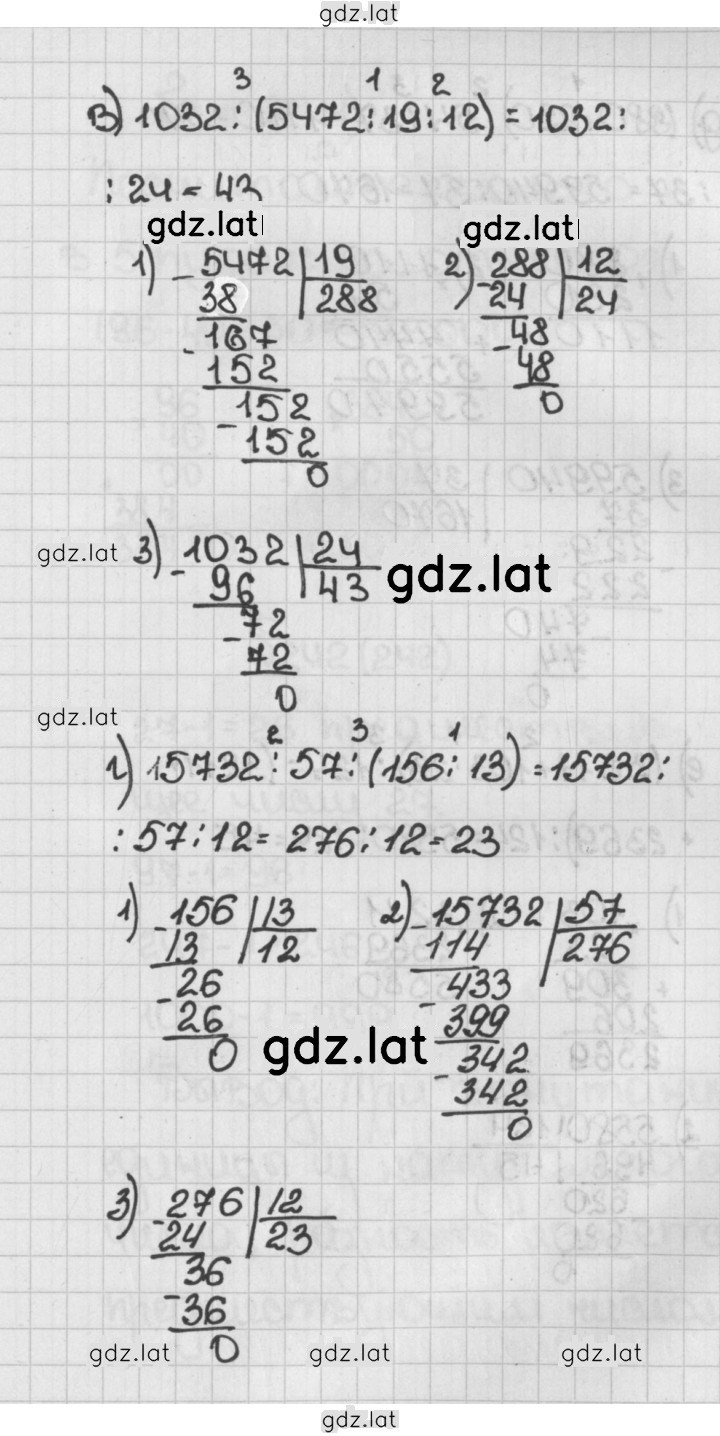 gdz.lat
3 1 2
в) 1032 : (5472 : 19 : 12) = 1032 :
: 24 = 43
gdz.lat gdz.lat
1) - 5472 | 19
38 | 288
- 167
152
- 152
152
0
2) - 288 | 12
24 | 24
- 48
48
0
gdz.lat
3) - 1032 | 24
96 | 43
- 72
72
0
gdz.lat
gdz.lat
2 3 1
г) 15732 : 57 : (156 : 13) = 15732 :
: 57 : 12 = 276 : 12 = 23
1) - 156 | 13
13 | 12
- 26
26
0
2) - 15732 | 57
114 | 276
- 433
399
- 342
342
0
gdz.lat
3) - 276 | 12
24 | 23
36
- 36
0
gdz.lat gdz.lat gdz.lat
gdz.lat